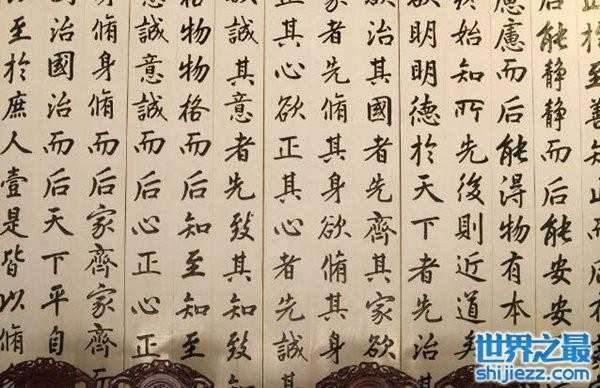 止於至善知止而后有
后能静静而后能安安
慮慮而后能得物有本
終始知所先後則近道矣
欲明明德於天下者先治
欲治其國者先齊其家欲
者先脩其身欲脩其身
正其心欲正其心者先誠
誠其意者先致其知致
格物物格而后知至知至
意誠意誠而后心正心正
身脩身脩而后家齊家齊而
治國治而后天下平自
至於庶人壹是皆以脩
世界之最
shijiezz.com